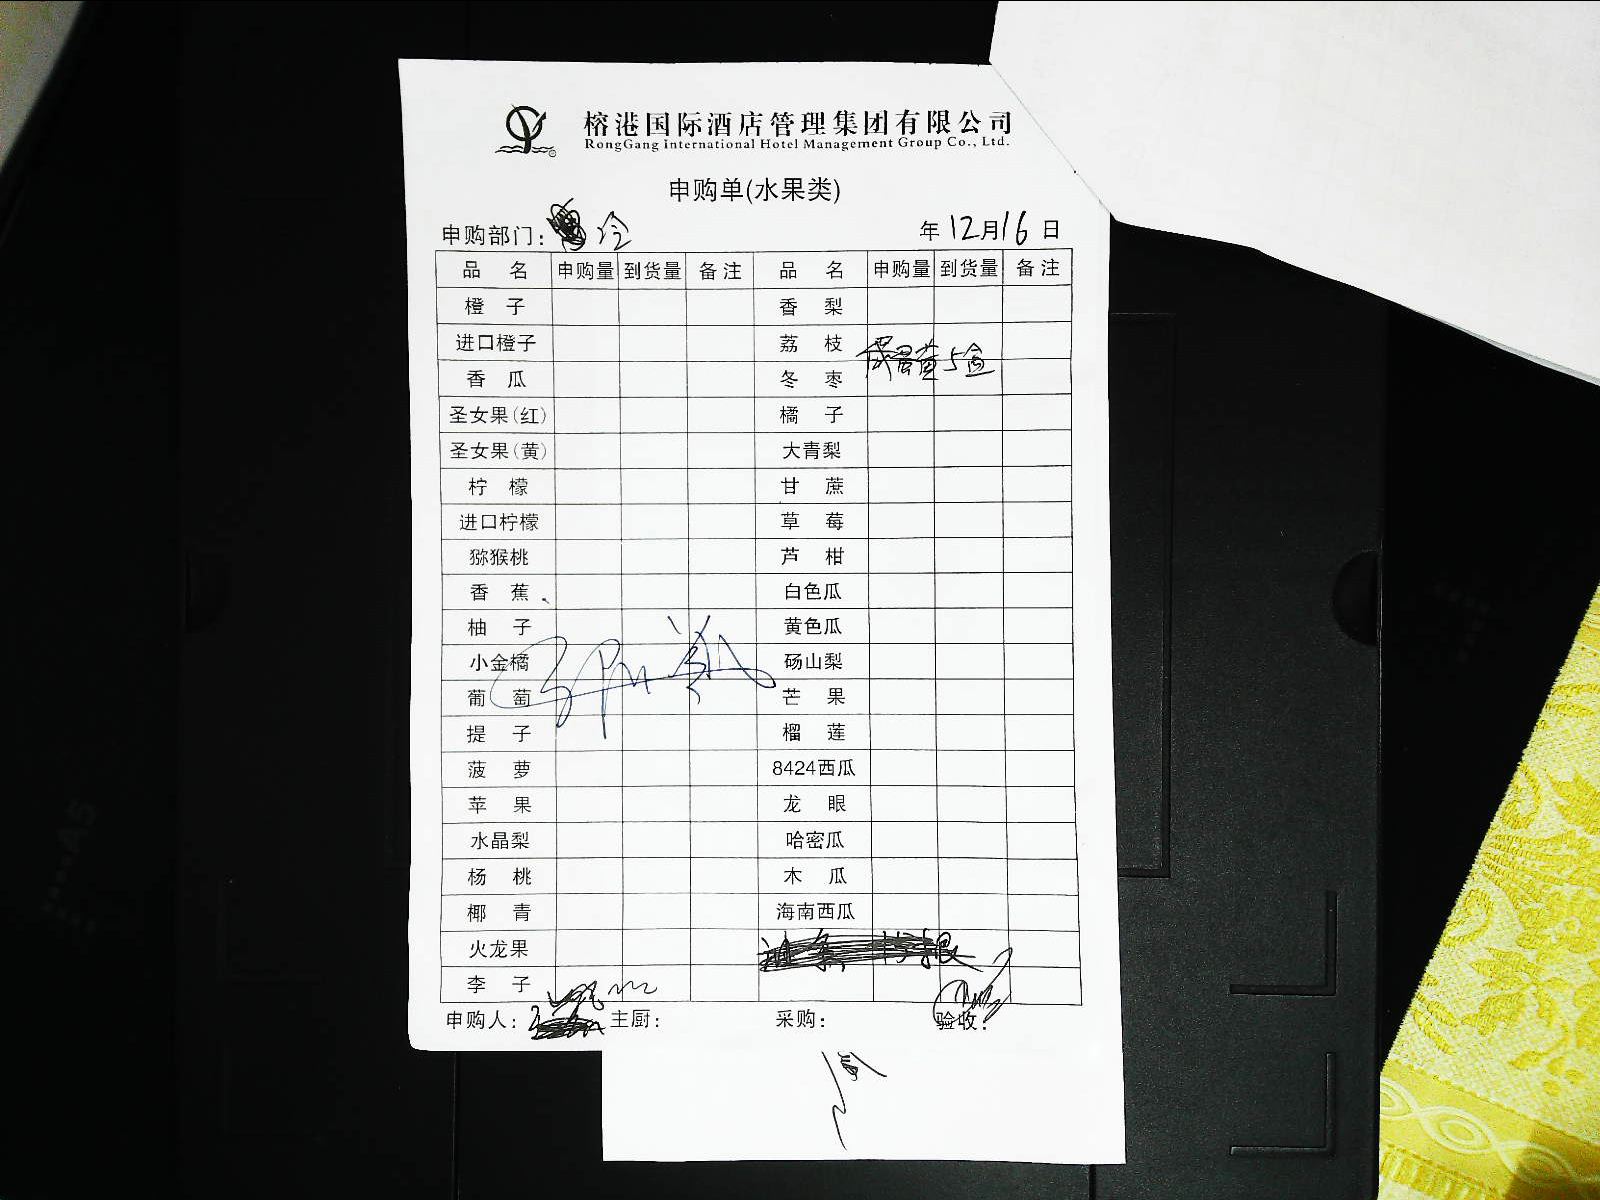 榕港国际酒店管理集团有限公司
RongGang International Hotel Management Group Co., Ltd.
申购单(水果类)
申购部门: 冷 年 12月16日
品名 申购量 到货量 备注 品名 申购量 到货量 备注
橙子 香梨
进口橙子 荔枝
咸蛋黄5盒
香瓜 冬枣
圣女果(红) 橘子
圣女果(黄) 大青梨
柠檬 甘蔗
进口柠檬 草莓
猕猴桃 芦柑
香蕉 白色瓜
柚子 黄色瓜
小金橘 砀山梨
葡萄 芒果
提子 榴莲
菠萝 8424西瓜
苹果 龙眼
水晶梨 哈密瓜
杨桃 木瓜
椰青 海南西瓜
火龙果
李子
申购人: 主厨: 采购: 验收: